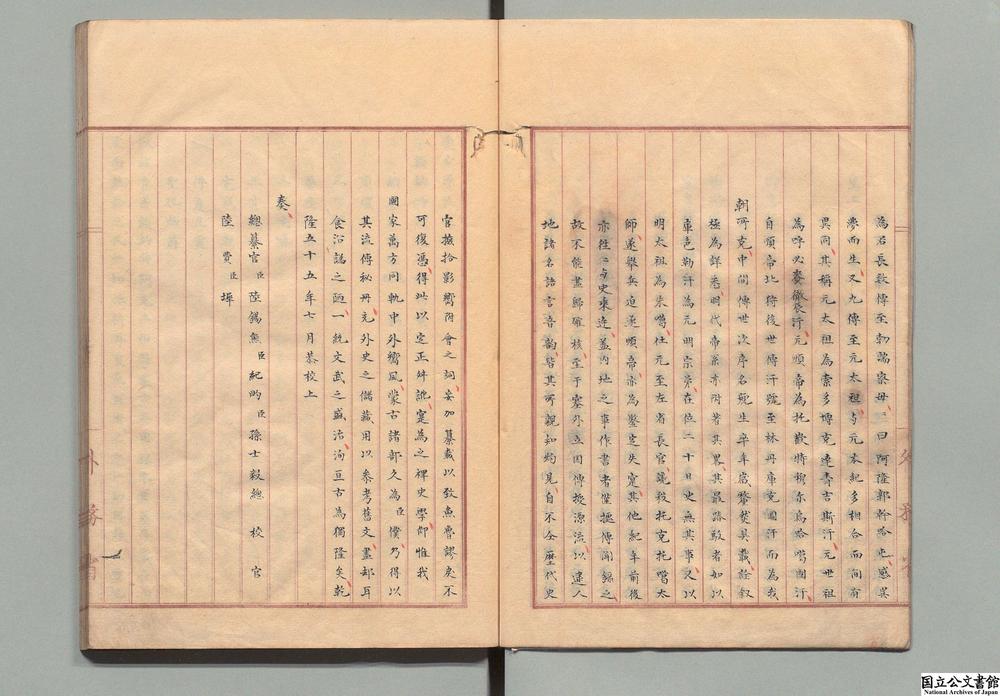 為君長數傳至勃端察母々曰阿隆郭斡哈屯感異
夢而生又九傳至元太祖與元本紀多相合而間有
異同其稱元太祖為索多博克達青吉斯汗元世祖
為呼必賚徹辰汗元順帝為托歡特穆尔烏哈噶圖汗
自順帝北狩後世傳汗號至林丹庫克圖汗而為我
朝所克中間傳世次序名號生卒年歲釐然具載詮叙
極為詳悉明代帝系亦附著其畧其最踳駁者如以
庫色勒汗為元明宗弟在位二十日史無其事又以
明太祖為朱噶仕元至左省長官讒殺托克托噶太
師遂舉兵迫逐順帝亦為鑿空失實其他紀年前後
亦往々與史乘違蓋內地之事作書者僅據傳聞錄之
故不能盡歸確核至于塞外立國傳授源流以逮人
地諸名語言音韵皆其所親知灼見自不全歷代史
官摭拾影響附會之詞妄加纂載以致魚魯謬戾不
可復憑得此以定正舛訛實為之稗史學仰惟我
國家萬方同軌中外嚮風蒙古諸部久為臣僕乃得以
其流傳秘冊充外史之儲藏用以參考舊文盡却耳
食沿譌之陋一統文武之盛洵亘古為獨隆矣乾
隆五十五年七月恭校上
奏
總纂官 臣 陸錫熊 臣 紀昀 臣 孫士毅總校官
臣 陸費墀
外務省
国立公文書館
National Archives of Japan